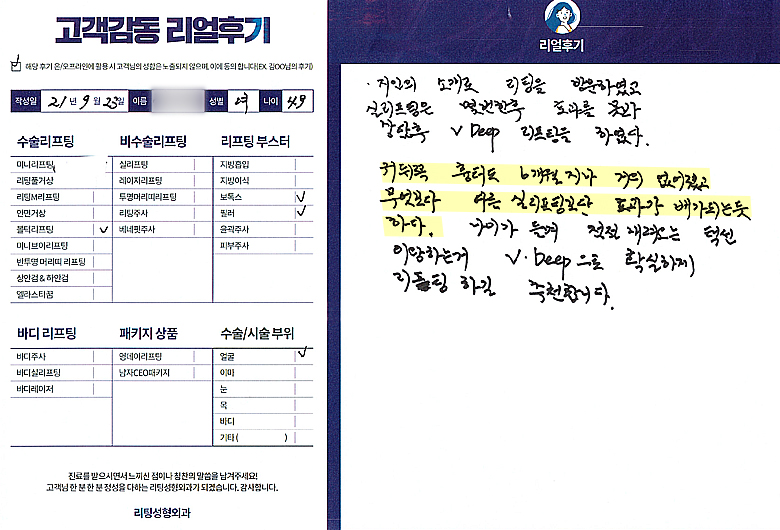 고객감동 리얼후기
해당 후기 온/오프라인에 활용 시 고객님의 성함은 노출되지 않으며, 이에 동의 합니다(EX. 김OO님의 후기)
작성일 21년 9월 23일 이름 성별 여 나이 49
수술리프팅 비수술리프팅 리프팅 부스터
미니리프팅 실리프팅 지방흡입
리팅풀거상 레이저리프팅 지방이식
리팅M리프팅 투명머리띠리프팅 보톡스 ✓
안면거상 리팅주사 필러 ✓
볼턱리프팅 ✓ 베네핏주사 윤곽주사
미니브이리프팅 피부주사
반투명 머리띠 리프팅
상안검 & 하안검
엘라스티꿈
바디 리프팅 패키지 상품 수술/시술 부위
바디주사 영데이리프팅 얼굴 ✓
바디실리프팅 남자CEO패키지 이마
바디레이저 눈
목
바디
기타 ( )
진료를 받으시면서 느끼신 점이나 칭찬의 말씀을 남겨주세요!
고객님 한 분 한 분 정성을 다하는 리팅성형외과가 되겠습니다. 감사합니다.
리팅성형외과
리얼후기
· 지인의 소개로 리팅을 방문하였고
실리프팅은 몇번한후 효과를 못봐
상담후 V Deep 리프팅을 하였다.
귀뒤쪽 흉터도 6개월 지나 거의 없어졌고
무엇보다 여른 실리프팅보단 효과가 배가되는듯
하다. 나이가 들며 점점 내려오는 턱선
이왕하는거 V·Deep으로 확실하게
리프팅 하길 추천합니다.